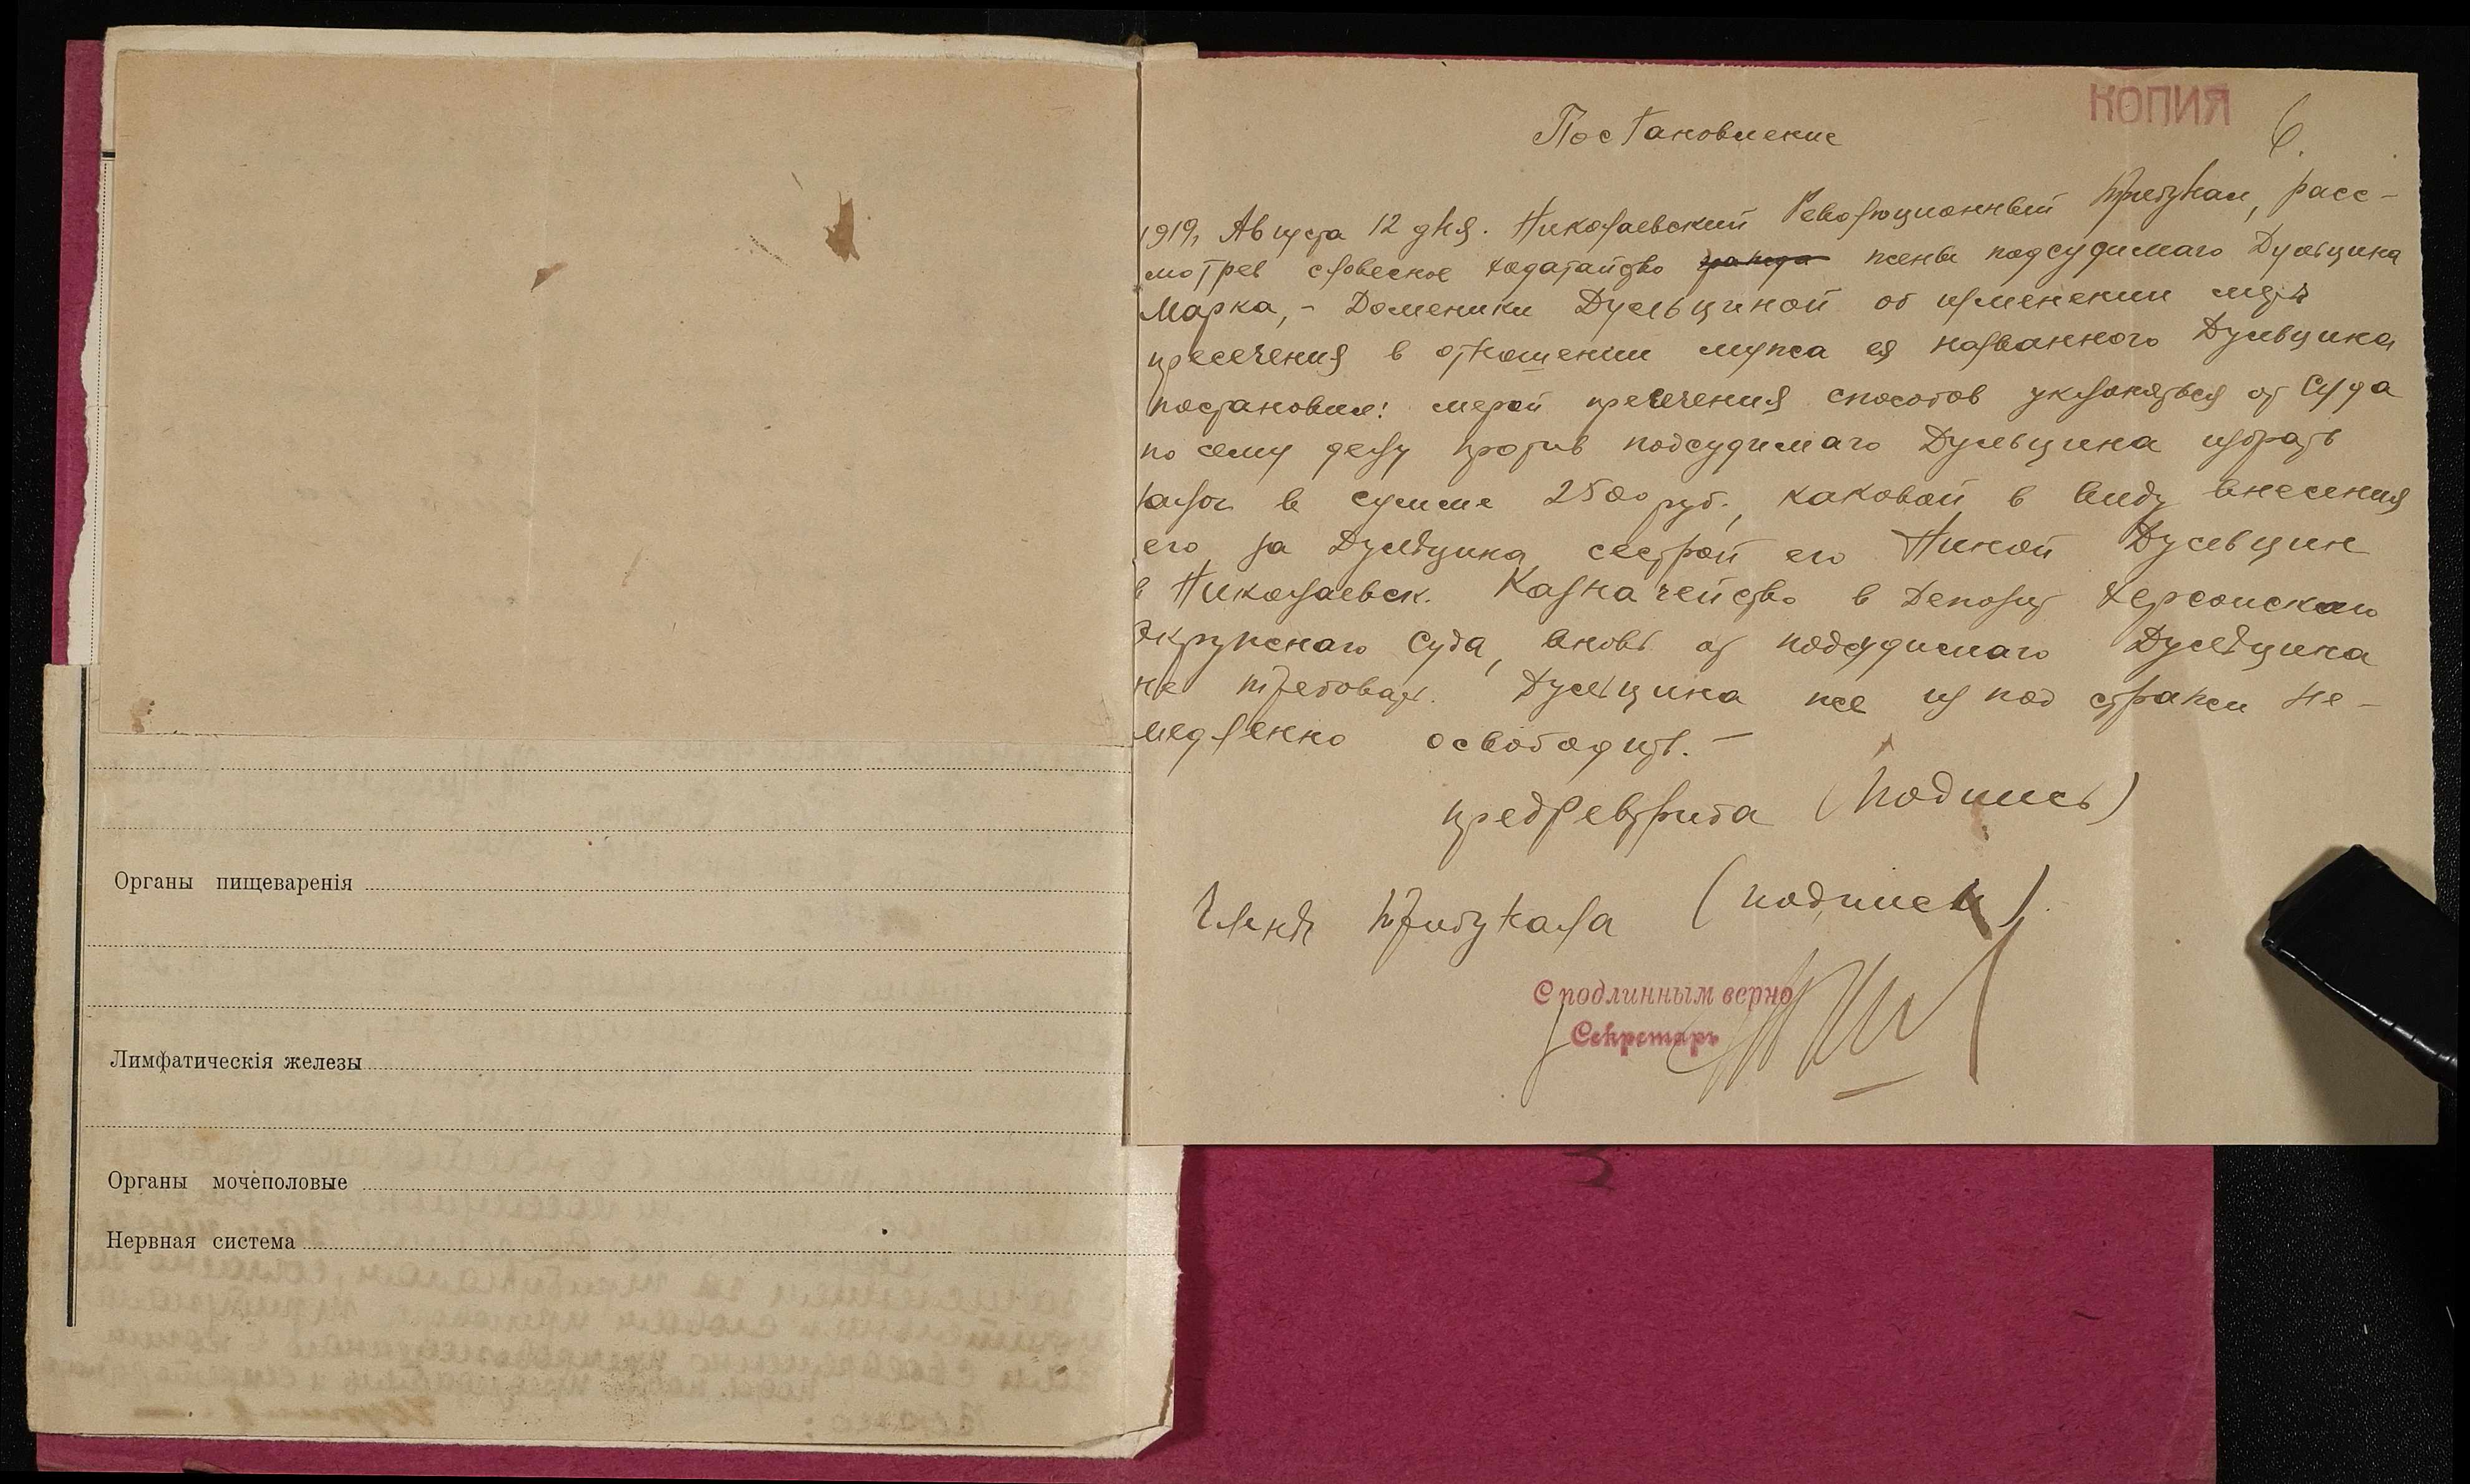 Органы пищеваренія
Лимфатическія железы
Органы мочеполовые
Нервная система
КОПИЯ
6.
Постановление
1919, Августа 12 дня. Николаевский Революционный трибунал, расс-
мотрев словесное ходатайство жены подсудимаго Дульцина
Марка, - Доменики Дульциной об изменении меръ
пресечения в отношении мужа ея названного Дульцина
постановил: мерой пресечения способов уклоняться от Суда
по сему делу против подсудимаго Дульцина избрать
залог в сумме 2500 руб., каковой, в виду внесения
его за Дульцина сестрой его Ниной Дульцин
в Николаевск. Казначейство в Депозит Херсонского
Окружнаго Суда, вновь от подсудимаго Дульцина
не требовать. Дульцина же из под стражи не-
медленно освободить. -
предРевтриба (подпись)
Члнъ трибунала (подписи).
С подлинным верно
Секретарь